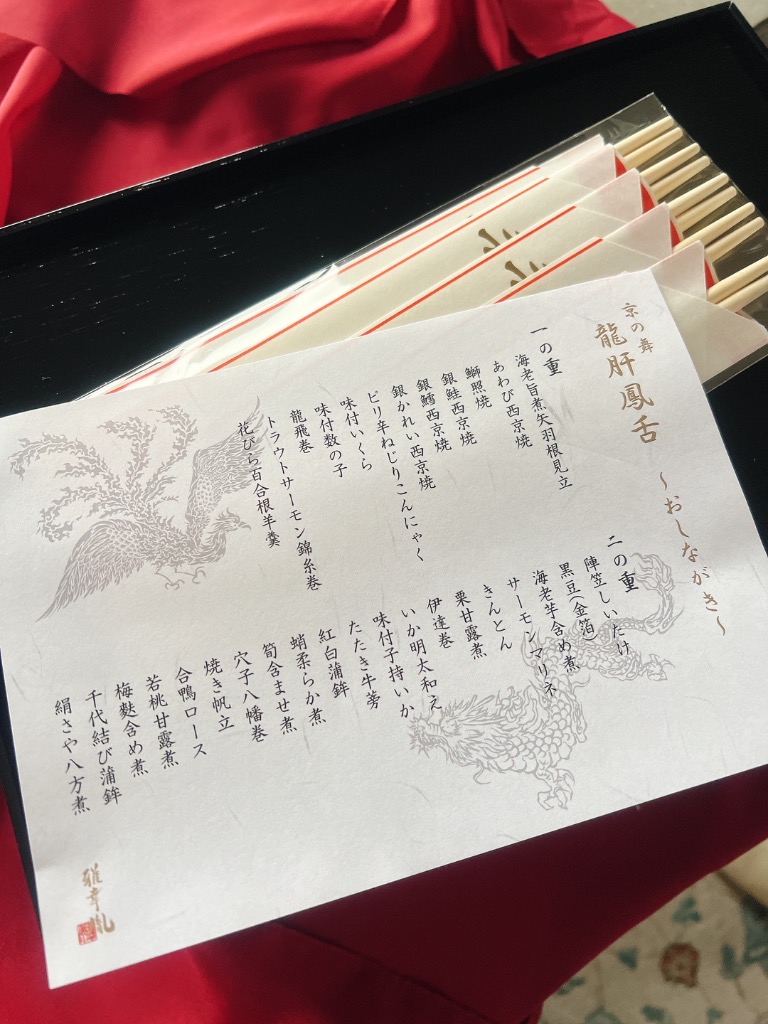 京の舞
龍肝鳳舌
～おしながき～
一の重
海老旨煮矢羽根見立
あわび西京焼
鰤照焼
銀鮭西京焼
銀鱈西京焼
銀かれい西京焼
ピリ辛ねじりこんにゃく
味付いくら
味付数の子
龍飛巻
トラウトサーモン錦糸巻
花びら百合根羊羹
二の重
陣笠しいたけ
黒豆(金箔)
海老芋含め煮
サーモンマリネ
きんとん
栗甘露煮
伊達巻
いか明太和え
味付子持いか
たたき牛蒡
紅白蒲鉾
蛸柔らか煮
筍含ませ煮
穴子八幡巻
焼き帆立
合鴨ロース
若桃甘露煮
梅麩含め煮
千代結び蒲鉾
絹さや八方煮